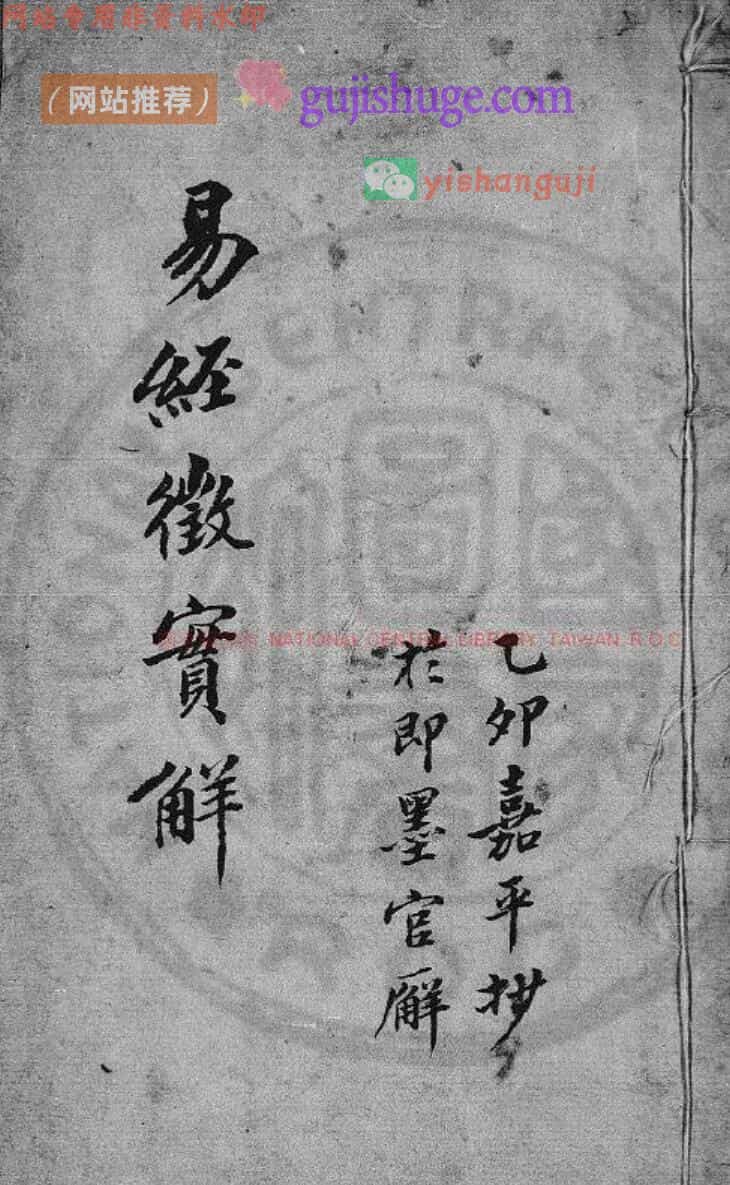 网站专用非资料水印
(网站推荐)
gujishuge.com
yishanguji
易經徵實解
NATIONAL CENTRAL LIBRARY TAIWAN R O C
乙卯嘉平抄
於即墨官廨